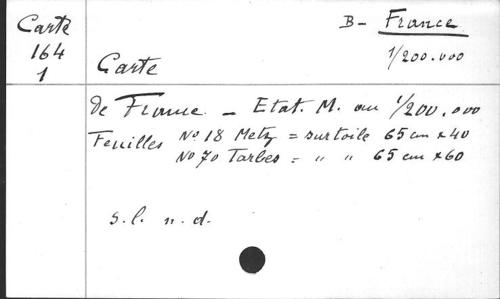 Carte
164
1
B- France
1/200.000
Carte
de France. - Etat. M. au 1/200.000
Feuilles No 18 Metz = sur toile 65 cm x 40
No 70 Tarbes = " " 65 cm x 60
s.l. n.d.